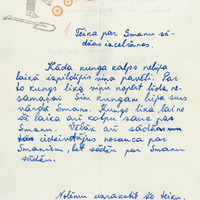 Teika par Smanu sā-
džas izcelšanos.
Kāda kunga kalps nebija
laikā izpildījis viņa pavēli. Par
to kungs lika viņu nopērt līdz ne-
samaņai. Šim kungam bija suns
vārdā Smans. Kungs lika laine
šā laika arī kalpu sauc par
Smanu. Vēlāk arī sādžas
iedzīvotājus nosauca par
Smaniem, bet sādžu par Smanu
sādžu.
Nolēmu uzrakstīt šo teiku,